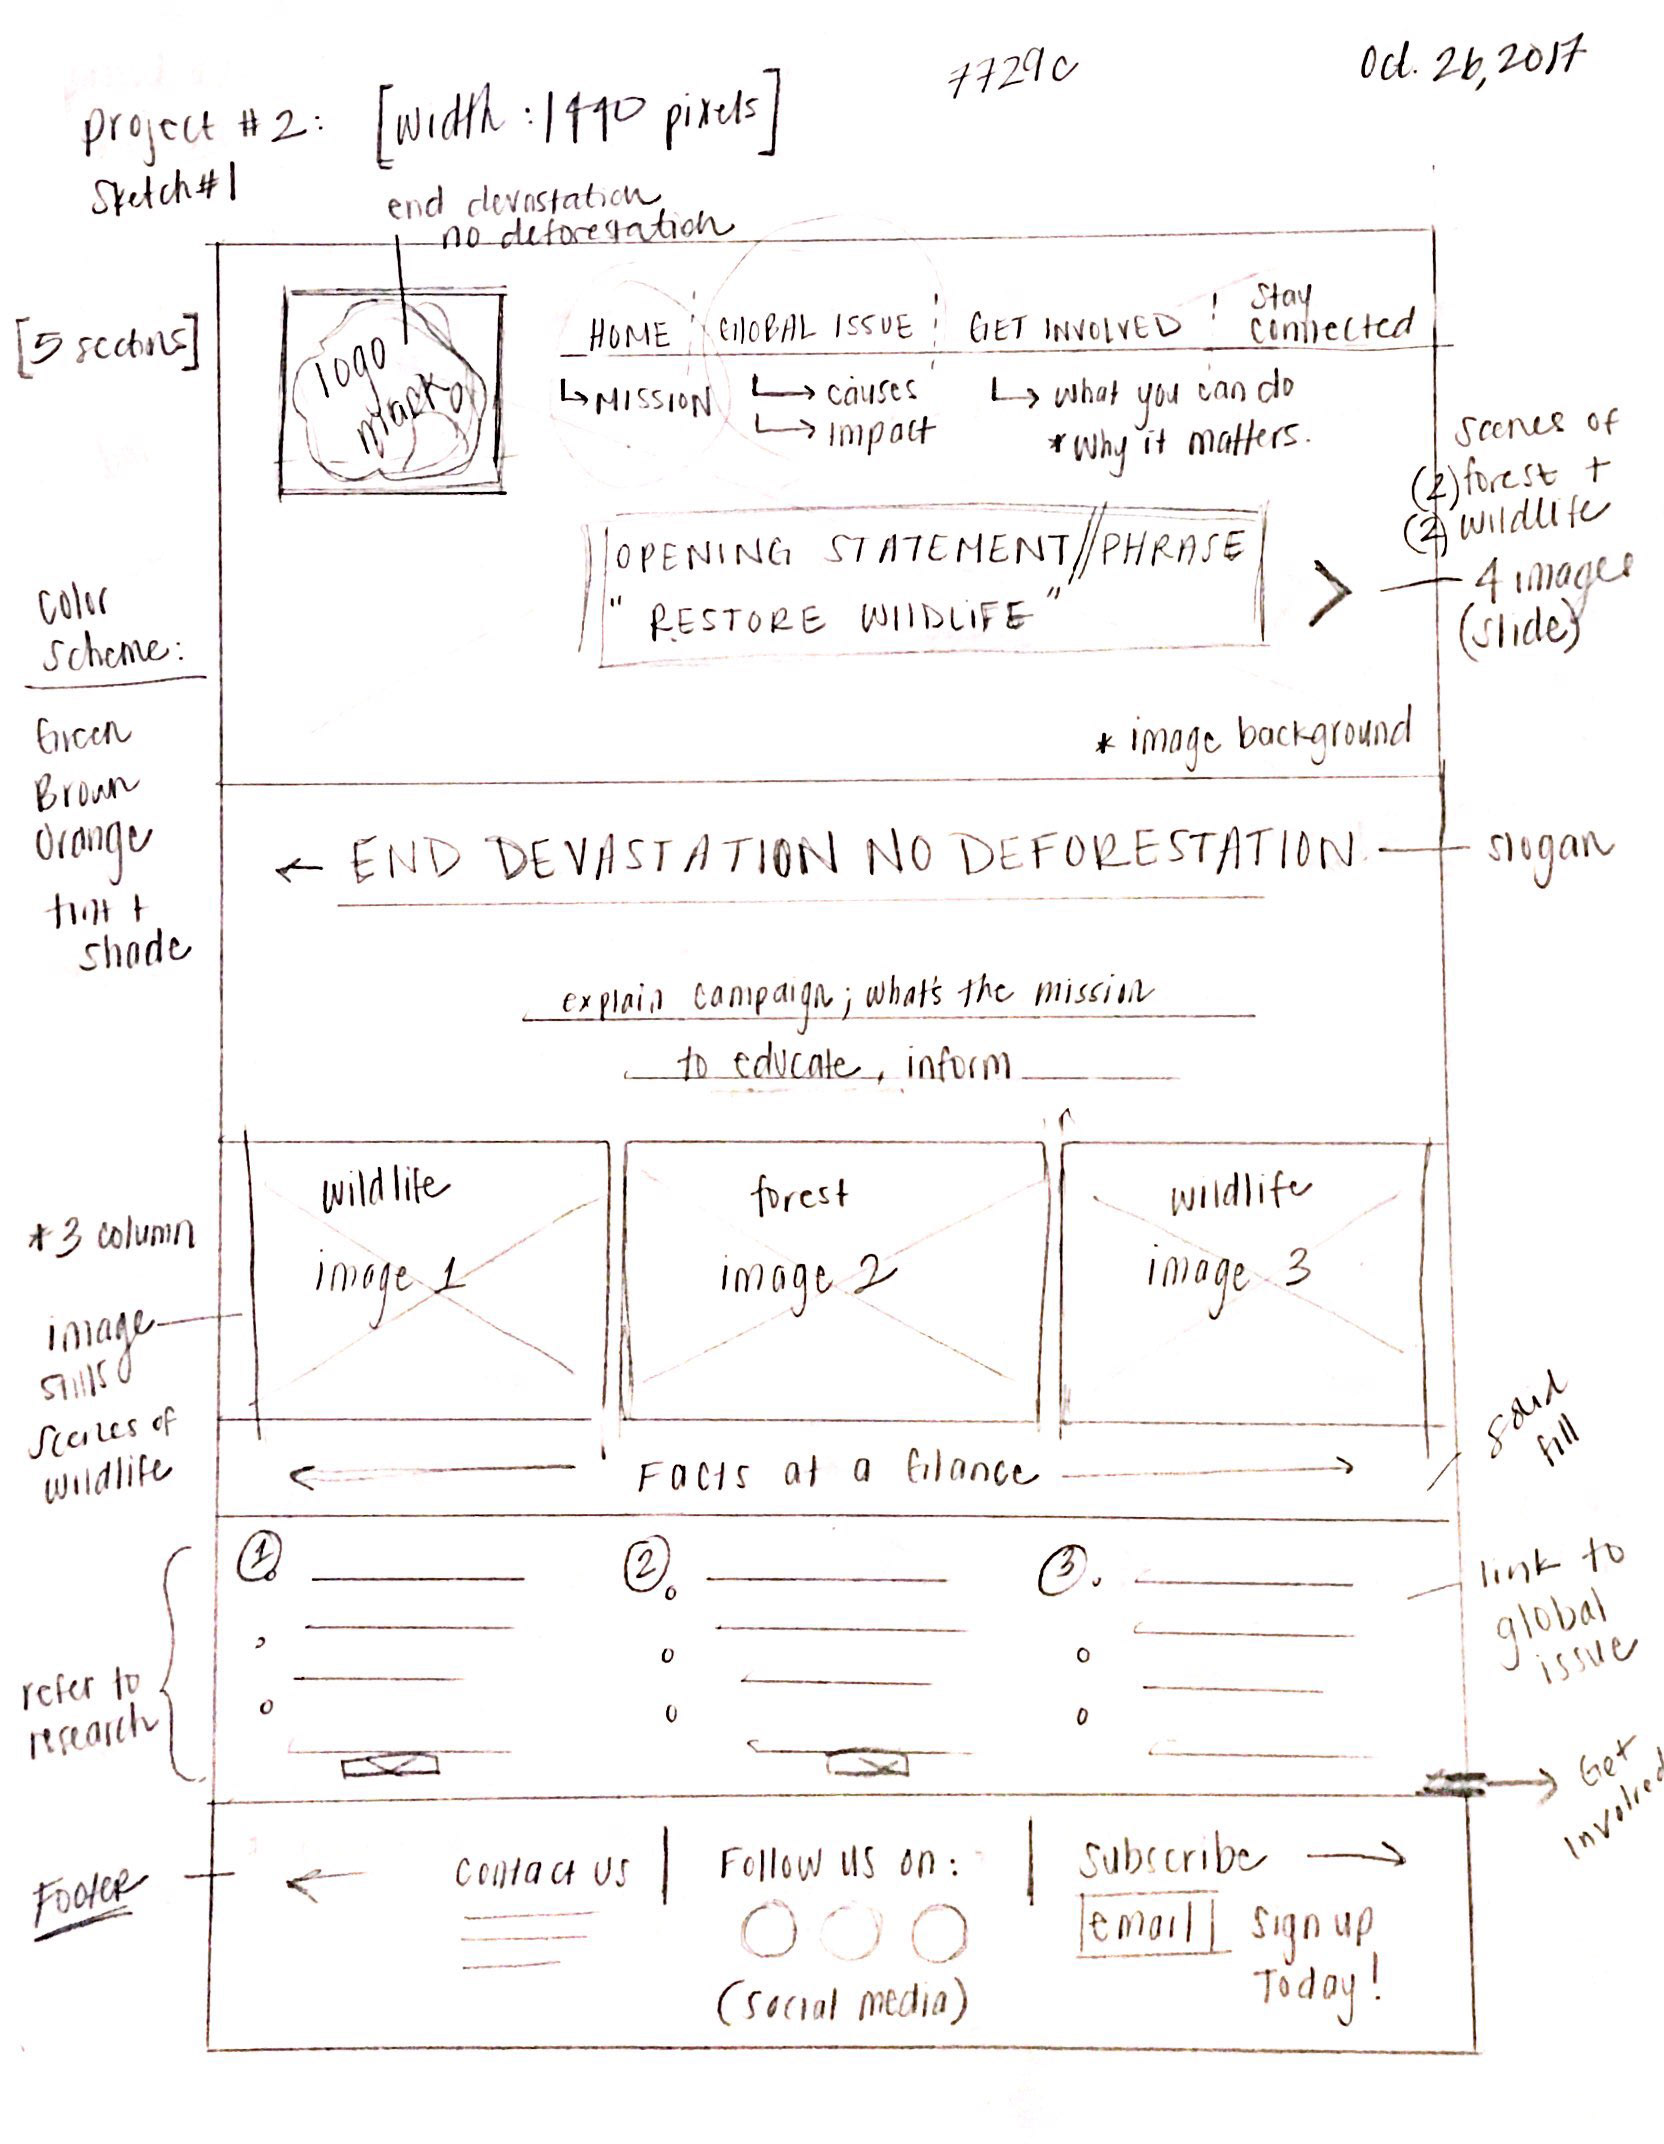 7729C
Oct. 26, 2017
project #2: [width: 1440 pixels]
Sketch#1
end devastation
no deforestation
[5 sections]
logo
mark
HOME
GLOBAL ISSUE
GET INVOLVED
Stay
Connected
MISSION
causes
impact
what you can do
*why it matters.
scenes of
(2) forest +
(2) wildlife
4 images
(slide)
OPENING STATEMENT//PHRASE
"RESTORE WILDLIFE"
Color
Scheme:
Green
Brown
Orange
tint +
shade
* image background
END DEVASTATION NO DEFORESTATION
slogan
explain campaign; what's the mission
to educate, inform
wildlife
image 1
forest
image 2
wildlife
image 3
*3 column
image
stills
scenes of
wildlife
Facts at a Glance
solid
fill
1
2
3
refer to
research
link to
global
issue
Get
Involved
Footer
Contact us
Follow us on:
(social media)
Subscribe
email
sign up
Today!